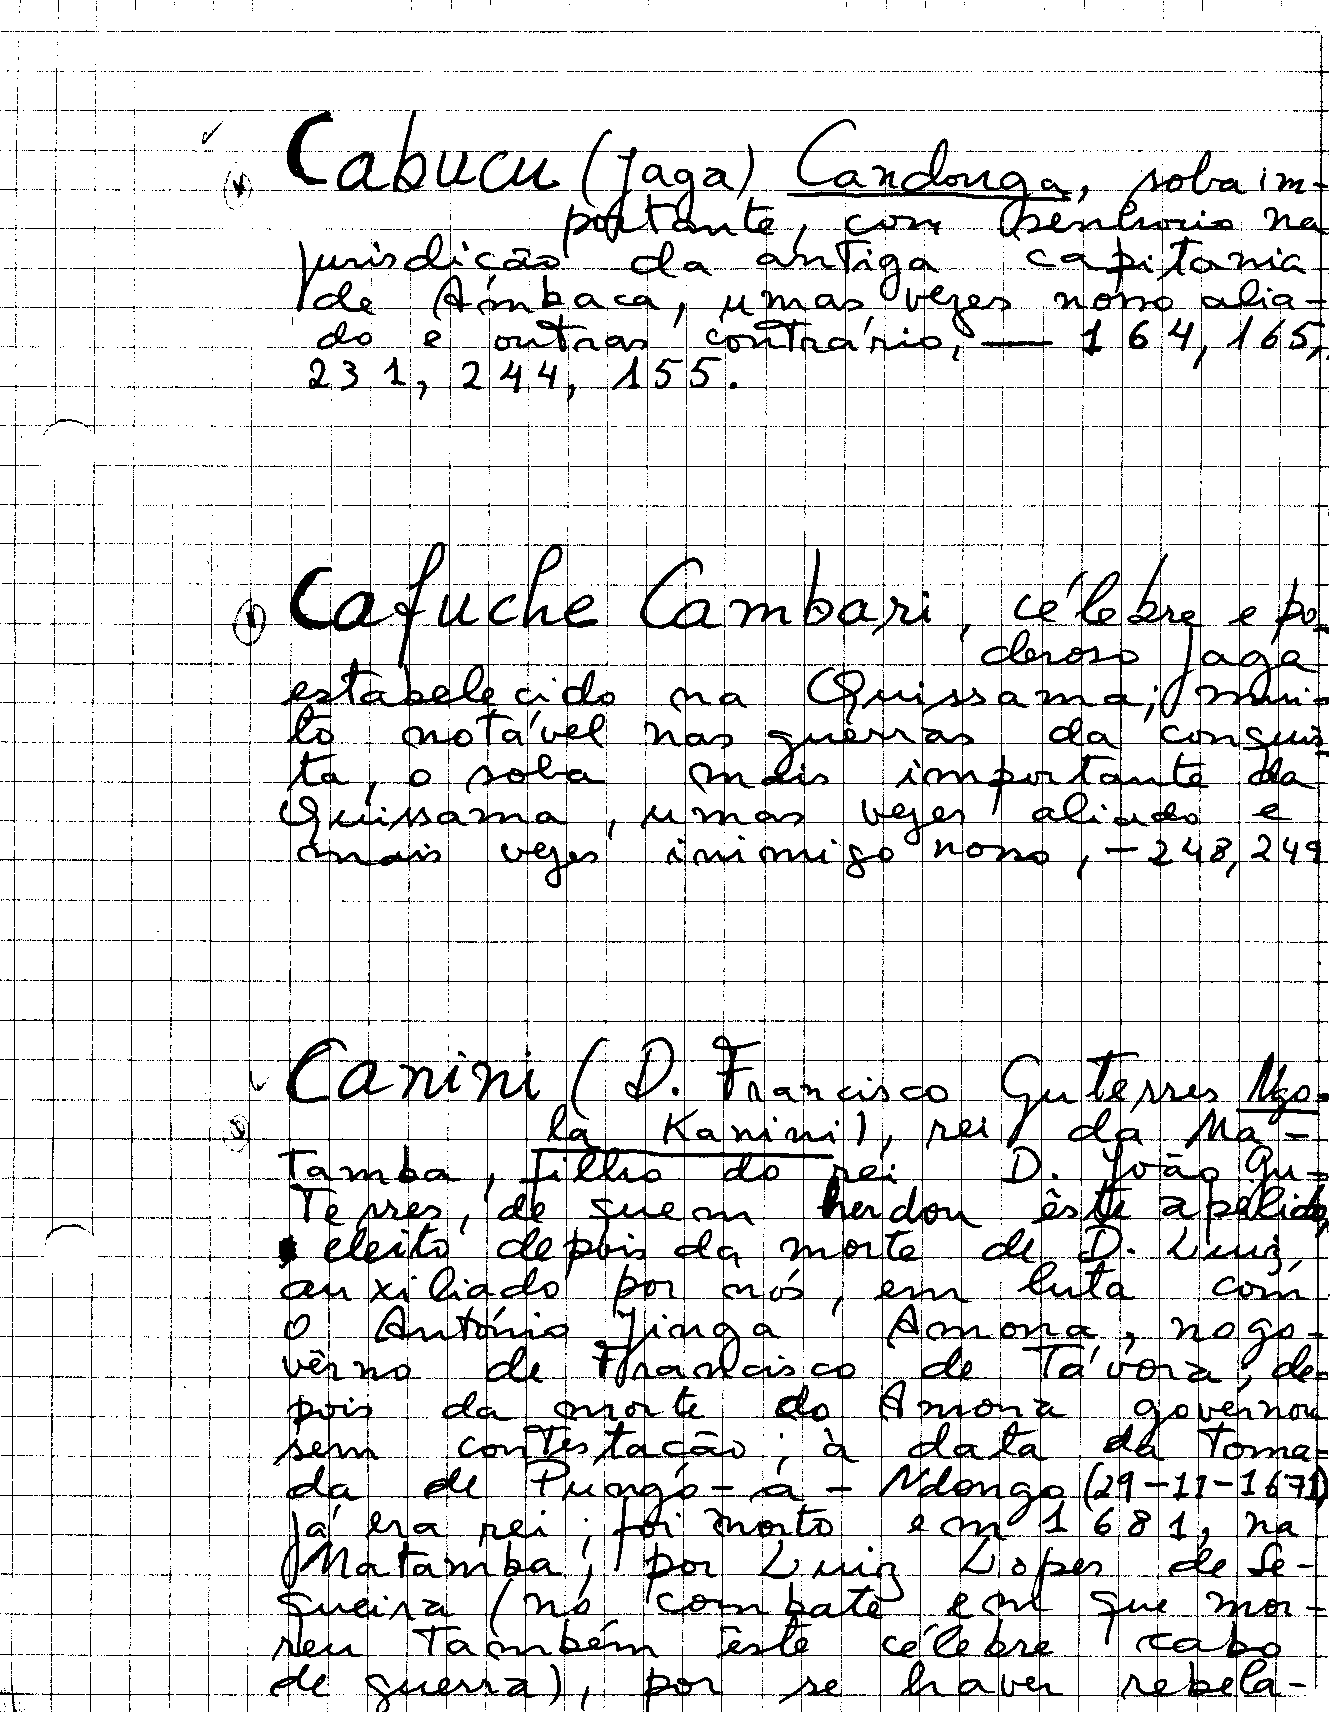 Cabucu (Jaga) Candonga, soba im-
portante, com senhorio na
jurisdição da antiga capitania
de Ambaca, umas vezes nosso alia-
do e outras contrário, — 164, 165,
231, 244, 155.
Cafuche Cambari, célebre e po-
deroso jaga
estabelecido na Quissama; mui-
to notável nas guerras da conquis-
ta, o soba mais importante da
Quissama, umas vezes aliado e
mais vezes inimigo nosso, - 248, 249
Canini (D. Francisco Guterres Ngo-
la Kanini), rei da Ma-
tamba, filho do rei D. João Gu-
terres, de quem herdou êste apelido,
eleito depois da morte de D. Luiz,
auxiliado por nós, em luta com
o António Jinga Amona, no go-
vêrno de Francisco de Távora, de-
pois da morte do Amona governou
sem contestação; à data da toma-
da de Pungo-a-Ndongo (29-11-1671)
já era rei; foi morto em 1681, na
Matamba, por Luiz Lopes de Se-
queira (no combate em que mor-
reu também êste célebre cabo
de guerra), por se haver rebela-